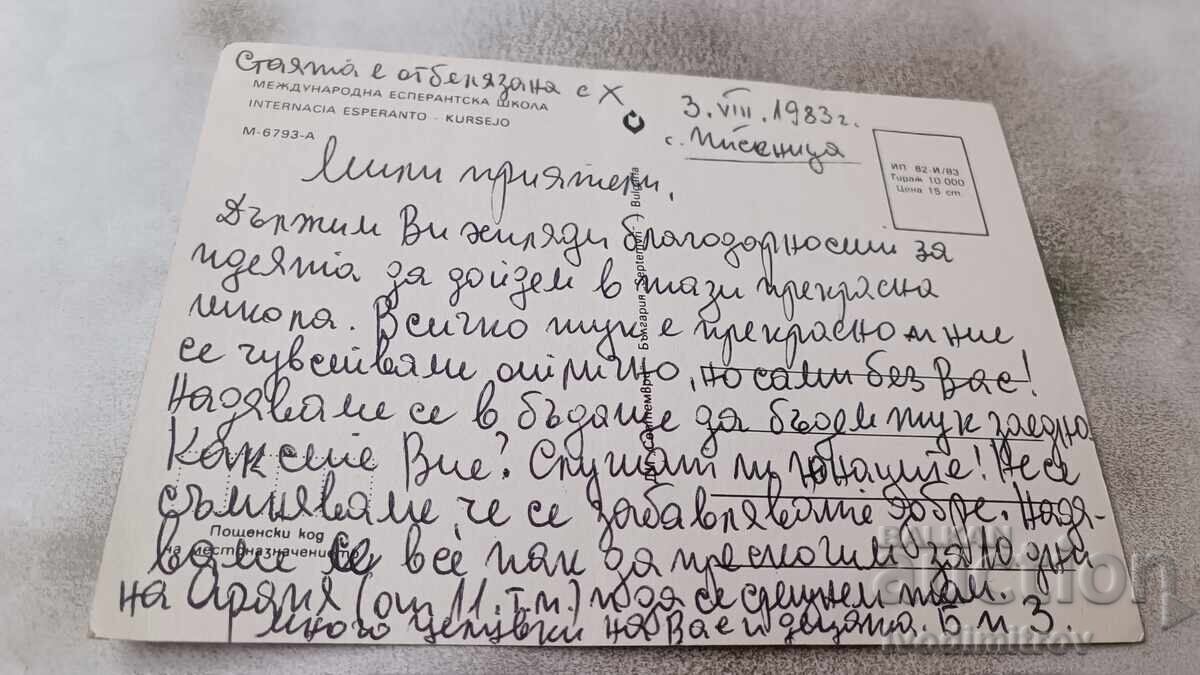 Стаята е отбелязана с X
МЕЖДУНАРОДНА ЕСПЕРАНТСКА ШКОЛА
INTERNACIA ESPERANTO - KURSEJO
М-6793-А
3.VIII.1983 г.
с. Писаница
ИП 82-И/83
Тираж 10 000
Цена 15 ст.
Мили приятели,
Държим Ви хиляди благодарности за
идеята да дойдем в тази прекрасна
школа. Всичко тук е прекрасно и ние
се чувстваме отлично, но сами без Вас!
Надяваме се в бъдаще да бъдем тук заедно.
Как сте Вие? Слушат ли юнаците! Не се
съмняваме, че се забавлявате добре. Надя-
ваме се все пак да прескочим за 10 дни
на Аряня (от 11. т.м.) и да се срещнем там.
Много целувки на Вас и децата. Б и З.
ДИ „Септември“ България „Septemvri“ Bulgaria
Пощенски код
на местоназначението
BALKAN
auction
ivodimitrov